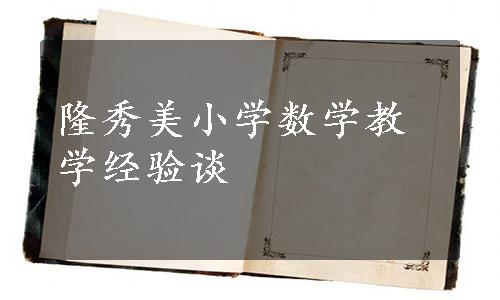 隆秀美小学数学教
学经验谈